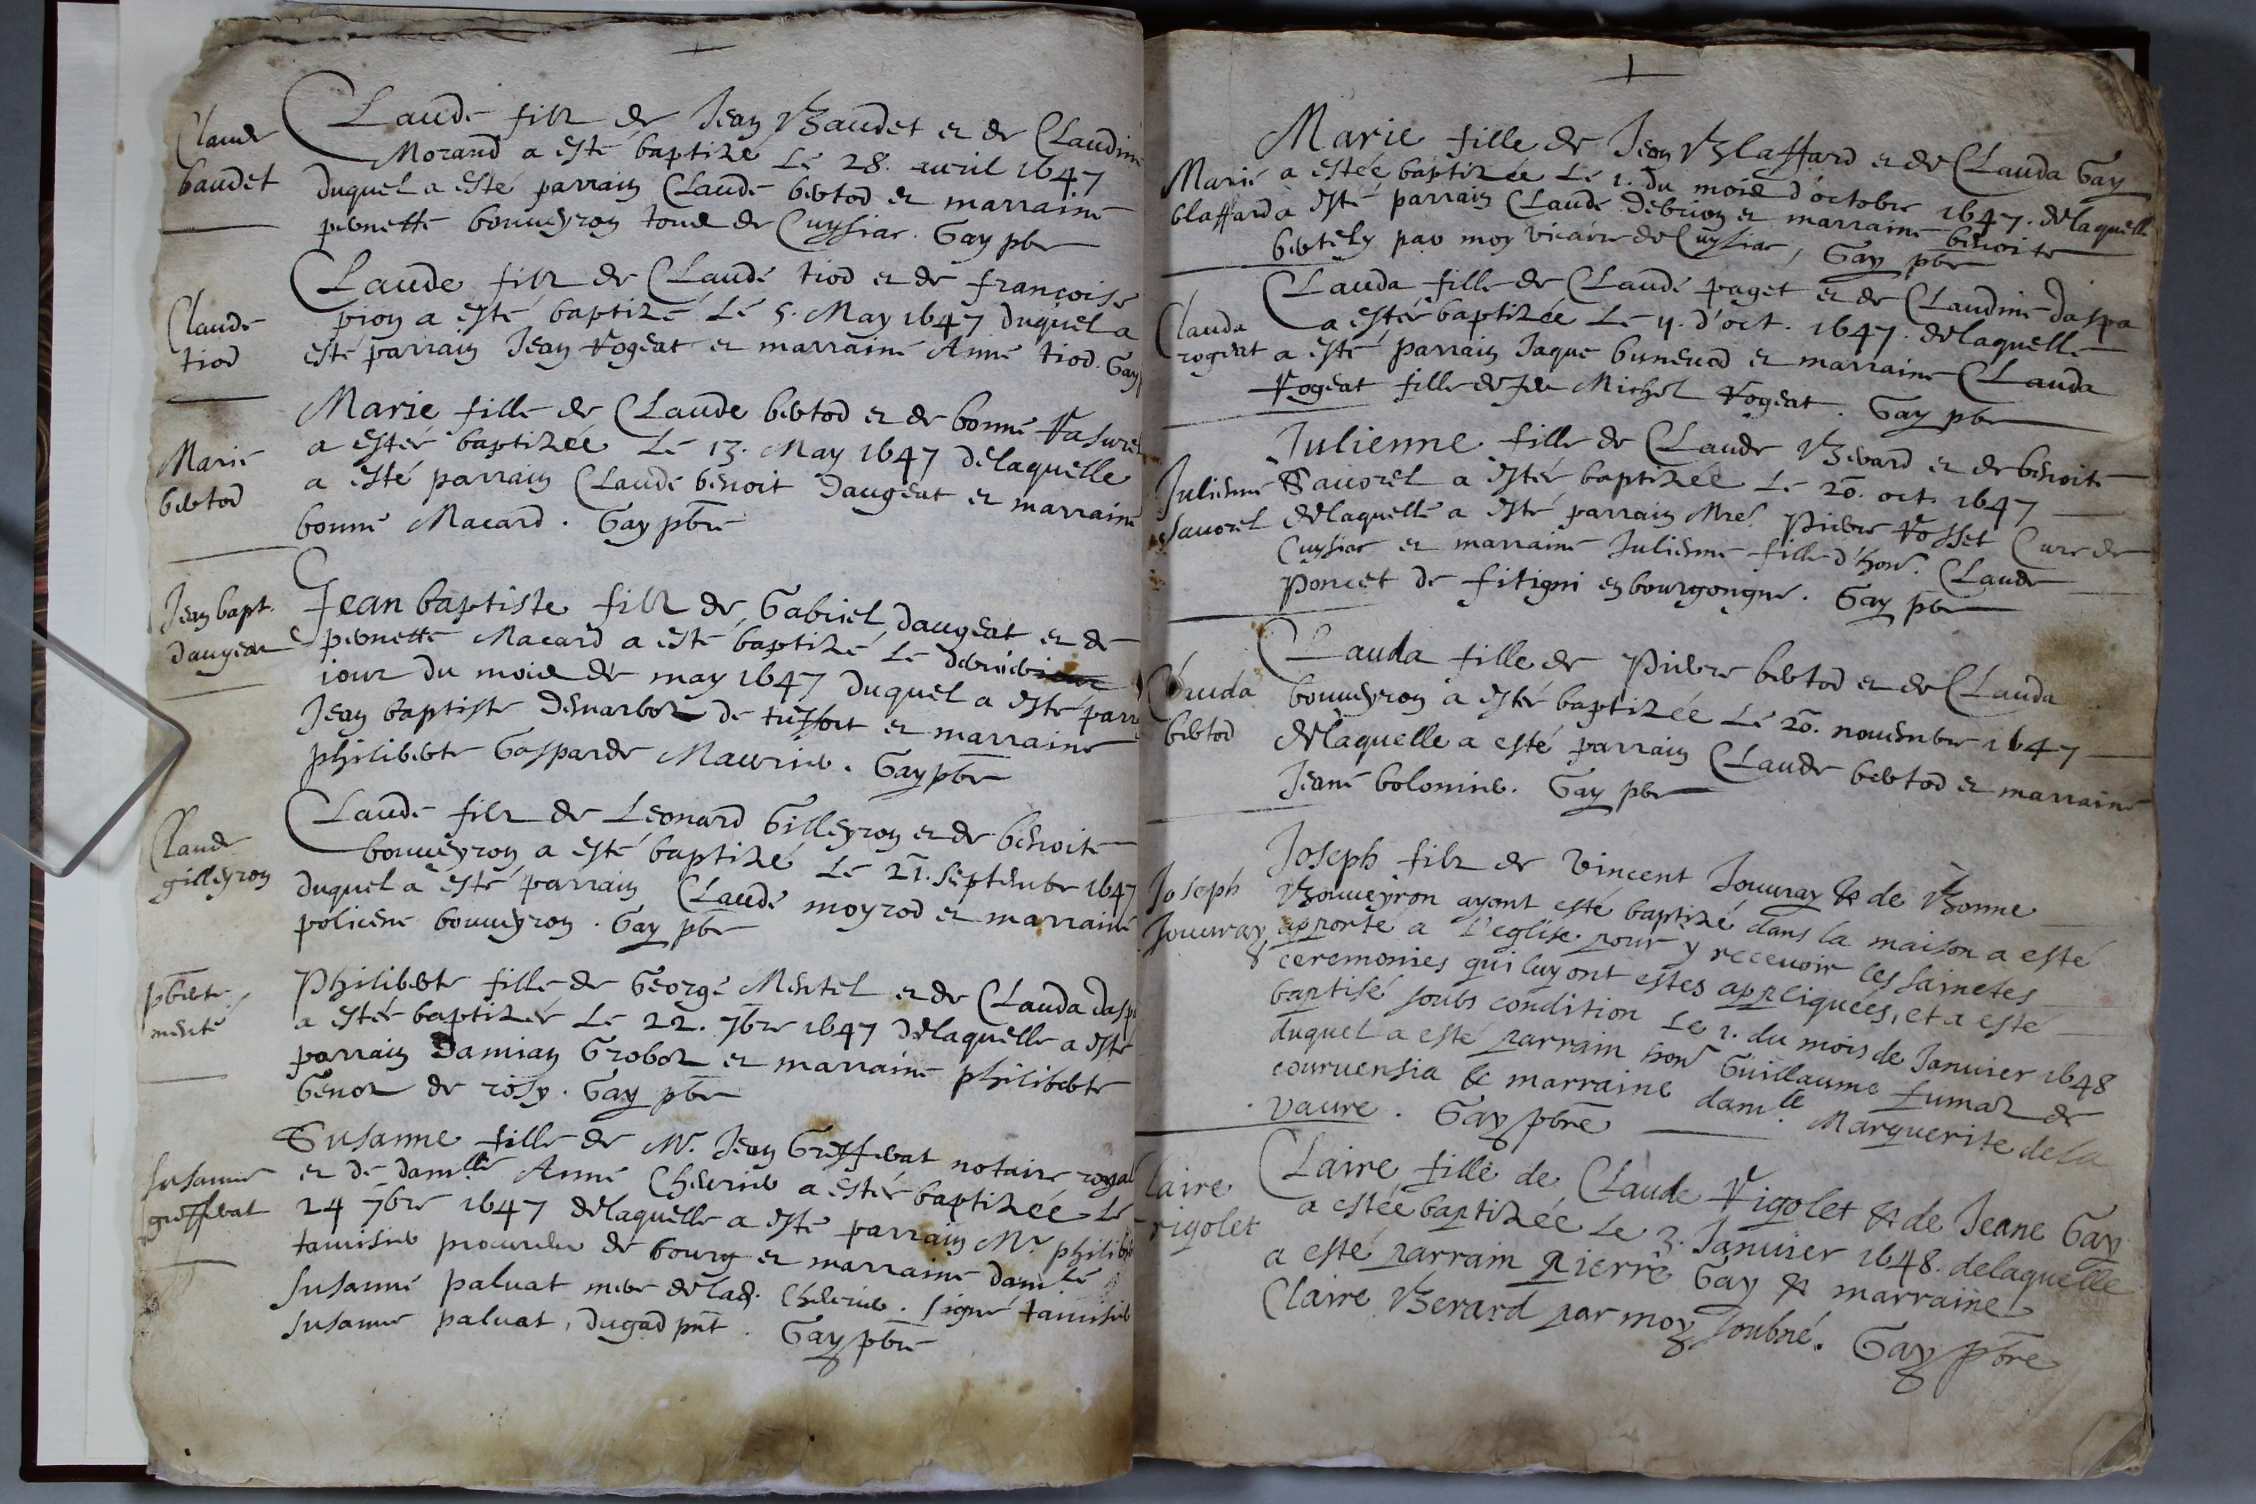 Claude
baudet
Claude filz de Jean Baudet et de Claudine
Morand a esté baptizé Le 28. auril 1647
duquel a esté parrain Claude bertod et marraine
pernette bouueyron tous de Cuysiac. Gay pbr
Claude
tiod
Claude filz de Claude tiod et de françoise
pron a esté baptizé Le 5. May 1647 duquel a
esté parrain Jean Rogeat et marraine Anne tiod. Gay
Marie
bertod
Marie fille de Claude bertod et de bonne Vasurel
a estée baptizée Le 13. May 1647 delaquelle
a esté parrain Claude benoit Daugeat et marraine
bonne Macard. Gay pbre
Jean bapt.
daugeat
Jean baptiste filz de Gabriel daugeat et de
pernette Macard a esté baptizé Le dernier
iour du mois de may 1647 duquel a esté parr
Jean baptiste de et marraine
philiberte Gasparde Maurier. Gay pbre
Claude
gilleyron
Claude filz de Leonard Gilleyron et de benoite
bouueyron a esté baptizé Le 21. septembre 1647
duquel a esté parrain Claude moyrod et marraine
policene bouueyron. Gay pbr
pberte
Philiberte fille de George Mentel et de Clauda dasp
a estée baptizée Le 22. 7bre 1647 delaquelle a esté
parrain Damian Groboz et marraine philiberte
Genoz de rosy. Gay pbr
susanne
grefferat
Susanne fille de Mr. Jean Grefferat notaire royal
et de damlle. Anne Cheurier a estée baptizée Le
24 7bre 1647 delaquelle a esté parrain Mr. philib
tamisier procureur de bourg et marraine damle
susanne paluat mere delad. Cheurier. signé tamisier
susanne paluat, dugad pnt. Gay pbre
Marie
blaffard
Marie fille de Jean Blaffard et de Clauda Gay
a estée baptizée Le 1. du mois d'octobre 1647. delaquelle
a esté parrain Claude debrion et marraine benoite
bertely par moy vicaire de Cuysiac, Gay pbr
Clauda
rogeat
Clauda fille de Claude paget et de Claudine daspa
a estée baptizée Le 4. d'oct. 1647. delaquelle
a esté parrain Jaque buneuod et marraine Clauda
Rogeat fille de feu Michel Rogeat. Gay pbr
Julienne
sauorel
Julienne fille de Claude Berard et de benoite
Sauorel a estée baptizée Le 20. oct. 1647
delaquelle a esté parrain Mre. Pierre Rosset Cure de
Cuysiac et marraine Julienne fille d'hon. Claude
Poncet de fitigni en bourgongne. Gay pbr
Clauda
bertod
Clauda fille de Pierre bertod et de Clauda
bouueyron a estée baptizée Le 20. nouembre 1647
delaquelle a esté parrain Claude bertod et marraine
Jeane bolomier. Gay pbr
Joseph
Jouuray
Joseph filz de Vincent Jouuray & de Bonne
Bouueyron ayant esté baptizé dans la maison a esté
apporté a l'eglise pour y receuoir les sainctes
ceremonies qui luy ont estés appliquées, et a esté
baptisé soubs condition Le 1. du mois de Januier 1648
duquel a esté parrain honr Guillaume fumaz de
couruensia & marraine damlle. Marguerite dela
vaure. Gay pbre
Claire
rigolet
Claire fille de Claude Rigolet & de Jeane Gay
a estée baptizée Le 3. Januier 1648. delaquelle
a esté parrain pierre Gay & marraine
Claire Berard par moy soubné. Gay pbre